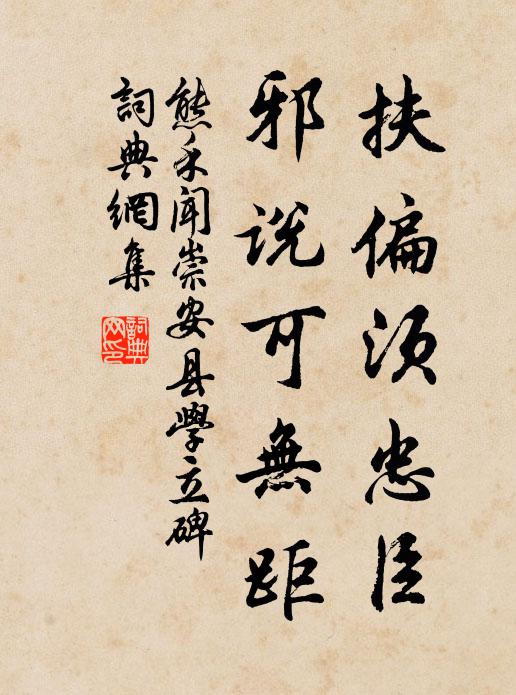 扶偏须忠臣
邪说可無距
熊禾闻崇安县學立碑
詞典網集
詞典
网印